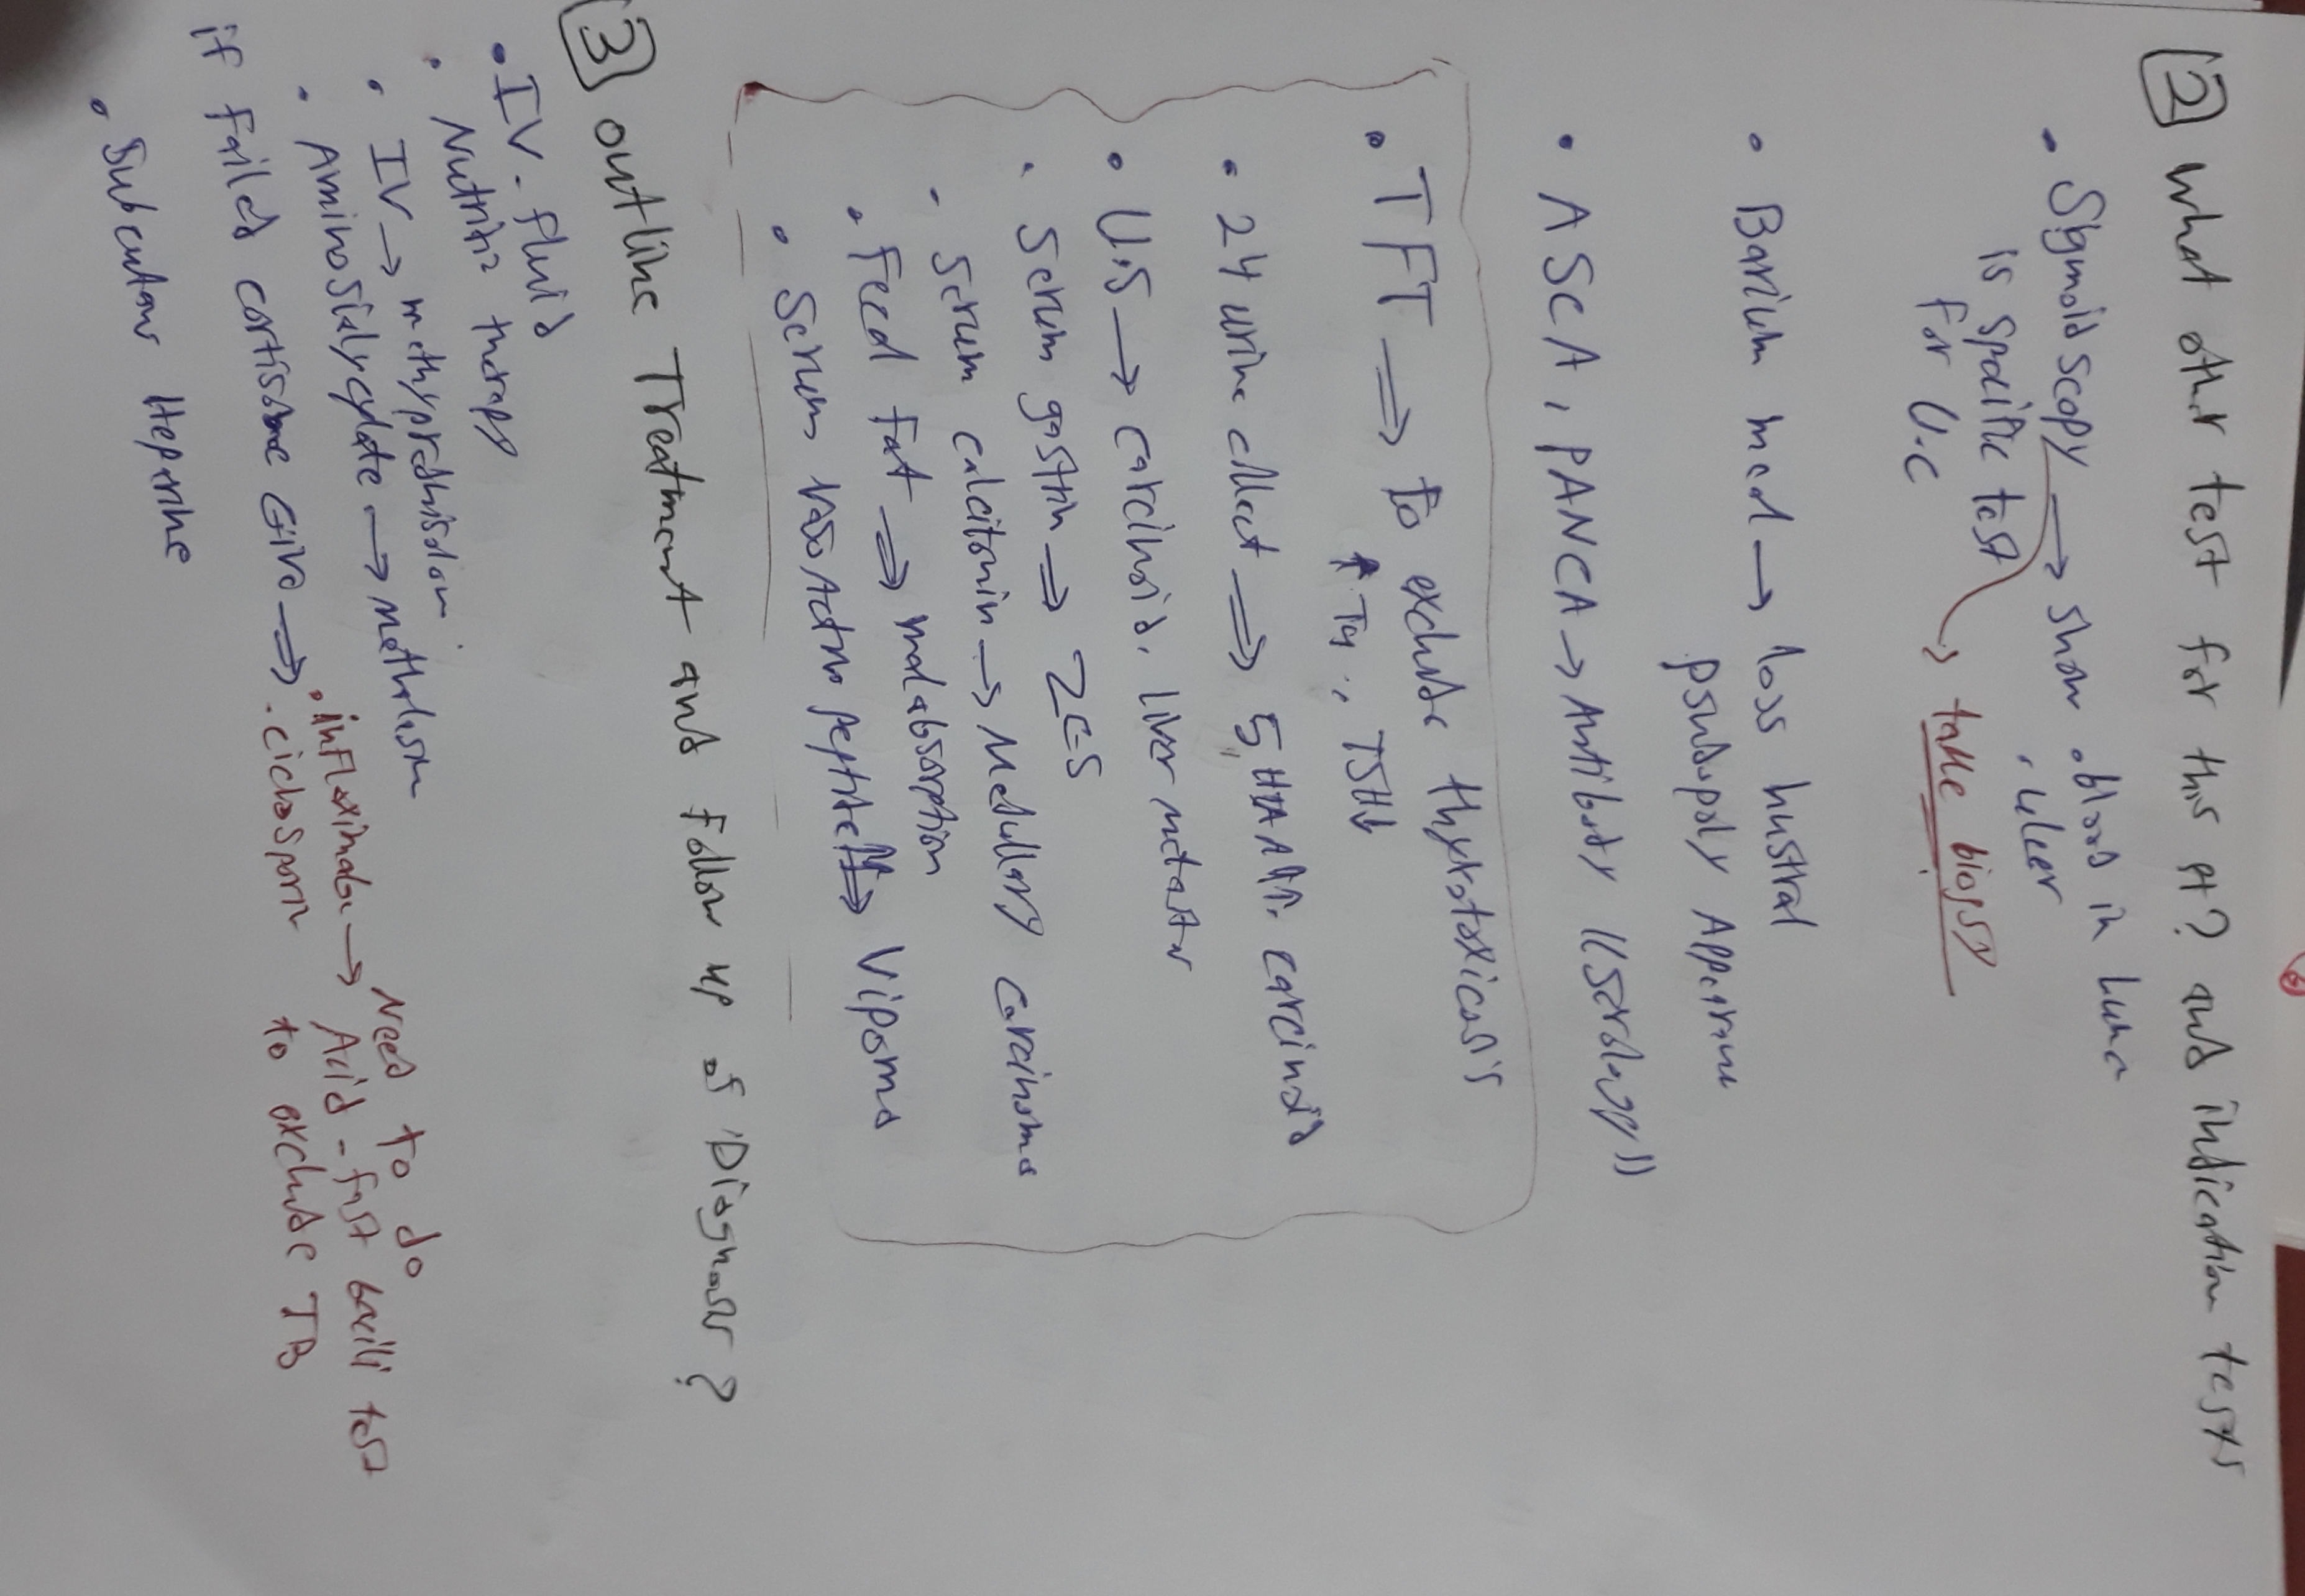 [2] what other test for this pt? and indication tests
• Sigmoid scopy → show • blood in lume
• ulcer
is spacific test
for U.C
→ take biopsy
• Barium meal → loss hustral
psudopoly Apperanc
• ASCA, PANCA → Antibody "serology"
• TFT ⇒ to exclude thyrotoxicosis
↑ T4, TSH↓
• 24 urine collect ⇒ 5, HIAA carcinoid
• U.S → carcinoid, liver metastas
• Serum gastrin ⇒ ZES
• Serum calcitonin → Medullary carcinoma
• Feed fat ⇒ malabsorption
• Serum vasoActive peptide ⇒ Vipoma
[3] outline Treatment and follow up of Diagnosis?
• IV - fluid
• Nutritio therapy
• IV → methyprednisolon
• Aminosialycylate → Methalasin
if faild cortisone Give ⇒ • inFlaximabe → Need to do
Acid - fast bacili test
• ciclosporin
to exclude TB
• Subcutans Heparine